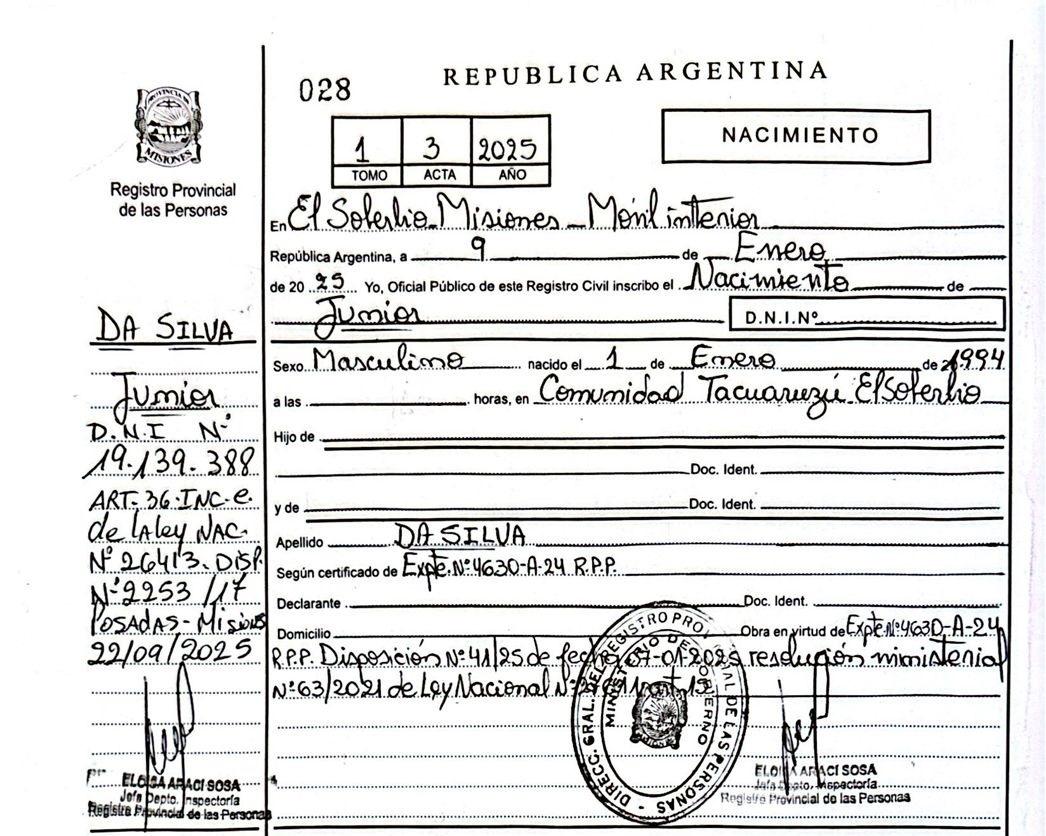 028
REPUBLICA ARGENTINA
PROVINCIA DE
MISIONES
Registro Provincial
de las Personas
1 3 2025
TOMO ACTA AÑO
NACIMIENTO
En El Soberbio Misiones - Móvil interior
República Argentina, a 9 de Enero
de 20 25 Yo, Oficial Público de este Registro Civil inscribo el Nacimiento de
Junior D.N.I.Nº
Sexo Masculino nacido el 1 de Enero de 1994
a las horas, en Comunidad Tacuaruzú El Soberbio
Hijo de
Doc. Ident.
y de Doc. Ident.
Apellido DA SILVA
Según certificado de Expte. Nº 4630-A-24 R.P.P.
Declarante Doc. Ident.
Domicilio Obra en virtud de Expte. Nº 4630-A-24
R.P.P. Disposición Nº 41/25 de 07-01-2025 resolución ministerial
Nº 63/2021 de Ley Nacional
DA SILVA
Junior
D.N.I Nº
19.139.388
ART. 36. INC. e.
de LA ley NAC.
Nº 26413. DISP.
Nº 2253/17
POSADAS - Misiones
22/09/2025
ELOISA ARACI SOSA
Jefa Depto. Inspectoría
Registro Provincial de las Personas
DIRECC. GRAL. DEL REGISTRO PROVINCIAL DE LAS PERSONAS
MINISTERIO DE GOBIERNO
ELOISA ARACI SOSA
Jefa Depto. Inspectoría
Registro Provincial de las Personas